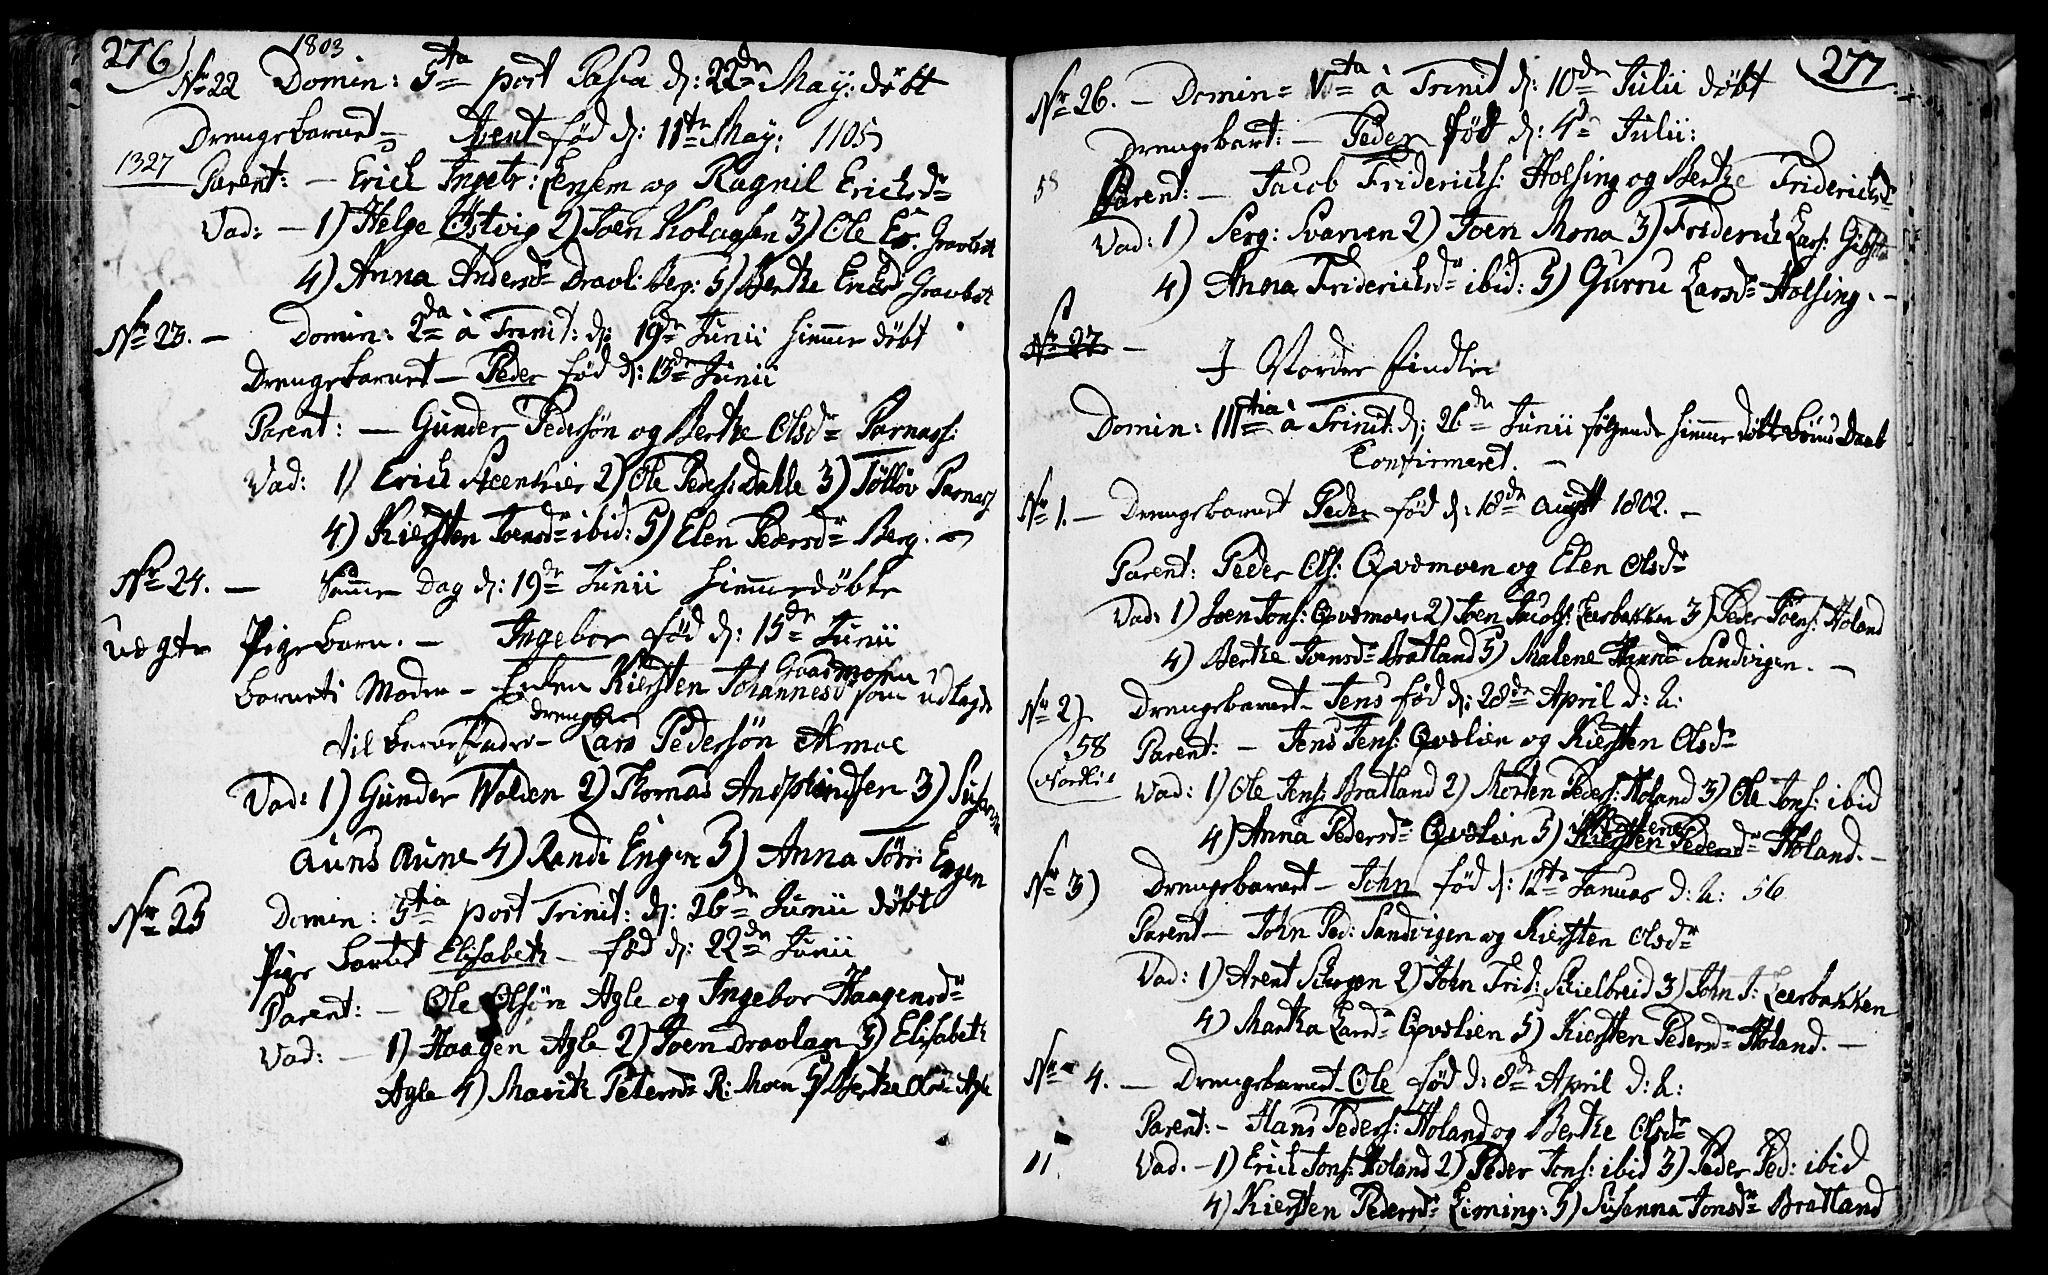 276)
1803
Nr 22 Domin: 5ta post Pasca d: 22de May: døbt
Drengebarnet – Arent fød d: 11te May: 1105
1327
Parent: – Erich Ingebr: og Ragnil Erichsdr
Vad: – 1) Helge Østvig 2) Joen Kolaasen 3) Ole Er: Gravbrot
4) Anna Andersdr Dravl: Berg: 5) Berthe Ericsd Gravbrot
Nr 23. – Domin: 2da à Trinit: d: 19de Junii hiemmedøbt
Drengebarnet – Peder fød d: 13de Junii
Parent: – Gunder Pedersøn og Berthe Olsdr Parnass:
Vad: 1) Erich 2) Ole Peders: Dahle 3) Tølløv Parnass
4) Kiersten Joensdr ibid: 5) Elen Pedersdr Berg. –
Nr 24. – Samme Dag d: 19de Junii hiemmedøbte
uægte Pigebarn. – Ingebor fød d: 15de Junii
Gaasmoen
Barnets Moder – Enken Kiersten Johannesd som udlagde
drengen
til barnefader – Lars Pedersøn Almoe
Vad: 1) Gunder Wolden 2) Thomas 3)
Auns Aune 4) Randi Engen 5) Anna Engen
Nr 25 Domin: 3tia post Trinit: d: 26de Junii døbt
Pige barnet Elisabeth – fød d: 22de Junii
Parent: – Ole Olsøn Agle og Ingebor Haagensdr
Vad: – 1) Haagen Agle 2) Joen Dravlan 3) Elisabeth
Agle 4) Marith Petersdr R: Moen 5) Berthe Agle
277
Nr 26. – Domin= Vta à Trinit d: 10de Julii døbt
Drengebart: – Peder fød d: 4de Julii:
58
Parent: – Jacob Friderichs: Holsing og Berthe Friderichsdr
Vad: 1) Serg: Svarven 2) Joen Mona 3) Friderich Lars:
4) Anna Friderichsdr ibid: 5) Gurru Larsdr Holsing. –
Nr 27 –
Vordre findlie
Domin: IIItia à Trinit: d: 26de Junii følgende hiemme døbte børns Daab
Confirmeret. –
Nr 1. – Drengebarnet Peder fød d: 18de August 1802. –
Parent: Peder Ols: Qvemoen og Elen Olsdr
Vad: 1) Joen Jons: Qvemoen 2) Joen Jacobs: Leerbakken 3) Peder Joens: Holand
4) Berthe Joensdr Bratland 5) Malene Hansdr Sandvigen. –
Nr 2) Drengebarnet – Jens fød d: 28de April d: A:
58
Nordlie
Parent: – Jens Jens: Qvelien og Kiersten Olsdr
Vad: 1) Ole Jens: Bratland 2) Morten Peders: Holand 3) Ole Jons: ibid
4) Anna Pedersdr Qvelien 5) Kiersten Pedersdr Holand. –
Nr 3) Drengebarnet – John fød d: 12te Januar d: A: 56
Parent – John Ped: Sandvigen og Kiersten Olsdr
Vad: 1) Arent 2) John Frid: Skielbreid 3) John J: Leerbakken
4) Martha Larsdr Qvelien 5) Kiersten Pedersdr Holand. –
Nr 4. – Drengebarnet – Ole fød d: 8de April d: A:
Parent: – Hans Peders: Holand og Berthe Olsdr
11
Vad. – 1) Erich Jons: Holand 2) Peder Jons: ibid 3) Peder Ped: ibid
4) Kiersten Pedersdr Liming: 5) Susanna Jonsdr Bratland